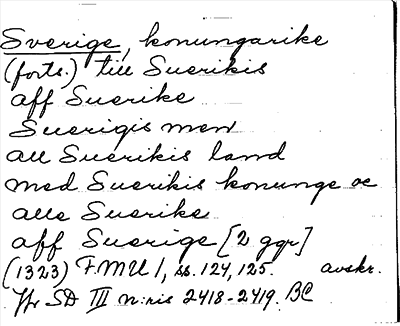 Sverige, konungarike
(forts.) till Suerikis
aff Suerike
Suerigis men
all Suerikis land
med Suerikis konunge oc
alle Suerike
aff Suerige [2 ggr]
(1323) FMU I, ss. 124, 125. avskr.
Jfr SD III n:ris 2418-2419. BC